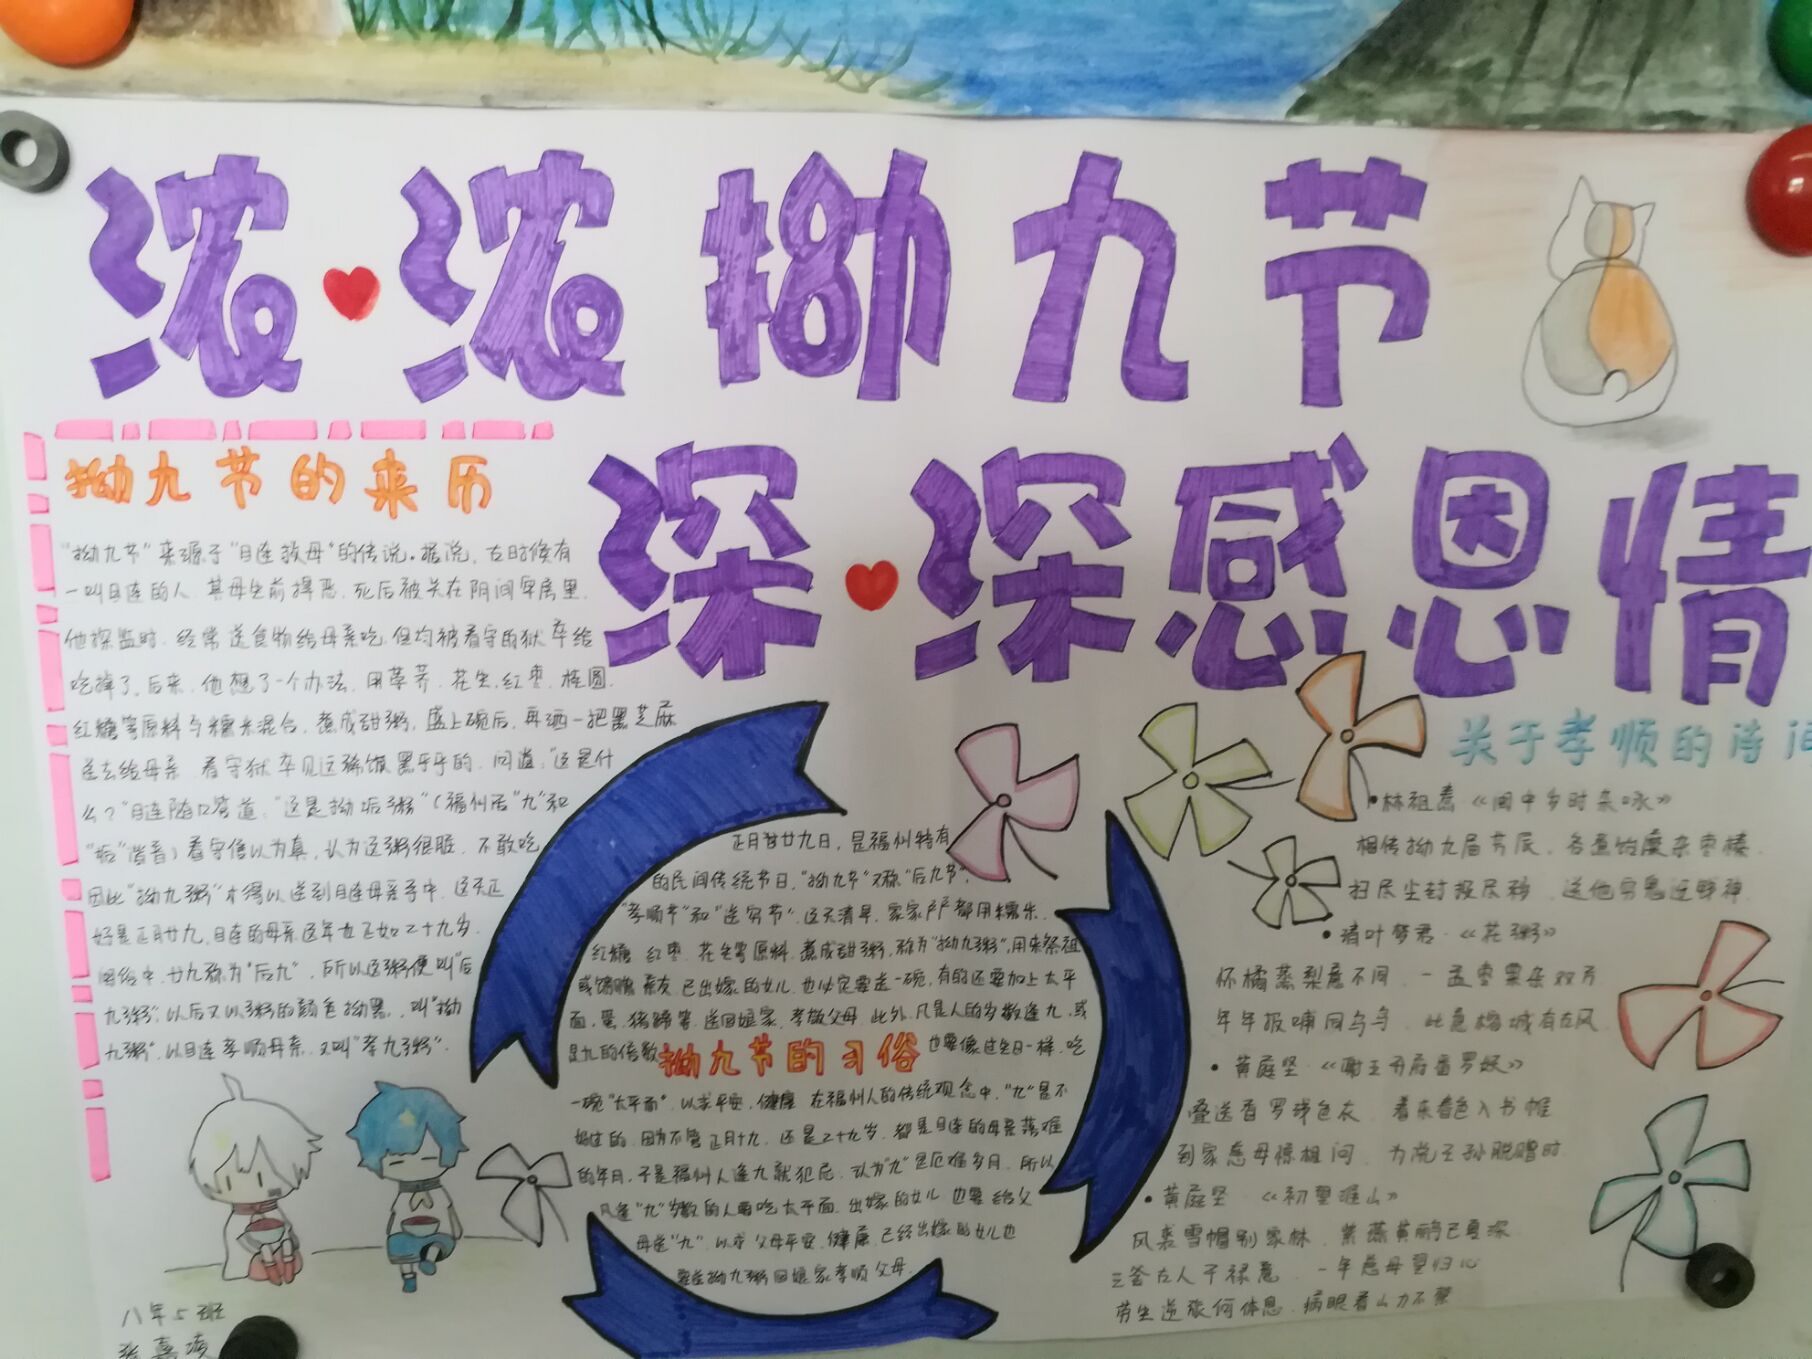 浓浓拗九节
深深感恩情
拗九节的来历
"拗九节"来源于"目连救母"的传说。据说，古时候有
一叫目连的人，其母生前择恶，死后被关在阴间牢房里.
他探监时，经常送食物给母亲吃，但均被看守的狱卒给
吃掉了。后来，他想了一个办法，用荸荠、花生，红枣、桂圆、
红糖等原料与糯米混合，煮成甜粥，盛上碗后，再洒一把黑芝麻
送去给母亲，看守狱卒见这稀饭黑乎乎的，问道："这是什
么？"目连随口答道："这是拗垢粥"（福州话"九"和
"垢"谐音）看守信以为真，认为这粥很脏，不敢吃
因此"拗九粥"才得以送到目连母亲手中，这天正
好是正月廿九，目连的母亲这年也正如二十九岁。
闽俗中，廿九称为"后九"，所以这粥便叫"后
九粥"，以后又以粥的颜色拗黑，叫"拗
九粥"，以目连孝顺母亲，又叫"孝九粥"。
八年5班
正月廿廿九日，是福州特有
的民间传统节日，"拗九节"又称"后九节"、
"孝顺节"和"送穷节"，这天清早，家家户户都用糯米、
红糖、红枣、花生等原料，煮成甜粥，称为"拗九粥"，用来祭祖
或馈赠亲友，已出嫁的女儿，也必定要送一碗，有的还要加上太平
面，蛋，猪蹄等，送回娘家，孝敬父母，此外，凡是人的岁数逢九，或
是九的倍数 也要像过生日一样，吃
拗九节的习俗
一碗"太平面"，以求平安，健康，在福州人的传统观念中，"九"是不
的，因为不管正月十九，还是二十九岁，都是目连的母亲落难
的年月，于是福州人逢九就犯忌，认为"九"是厄难岁月，所以
凡逢"九"岁数的人要吃太平面，出嫁的女儿也要给父
母送"九"，以求父母平安，健康，已经出嫁的女儿也
要送拗九粥回娘家孝顺父母。
关于孝顺的诗词
•林祖焘·《闽中岁时杂咏》
相传拗九届芳辰，各煮饴糜杂枣榛，
扫尽尘封投尽秽，送他穷鬼迓财神
•清叶梦君·《花粥》
怀橘蒸梨意不同，一盂枣栗杂双方
年年报哺同乌鸟，此意榕城有古风
•黄庭坚·《谢王丹府香罗妖》
叠送香罗 色衣，着来春色入书帷
到家慈母惊相问，为说王孙脱赠时
•黄庭坚·《初望淮山》
风裘雪帽别家林，紫燕黄鹂已夏深
三釜古人干禄意，一年慈母望归心
劳生逆旅何休息，病眼看山力不禁